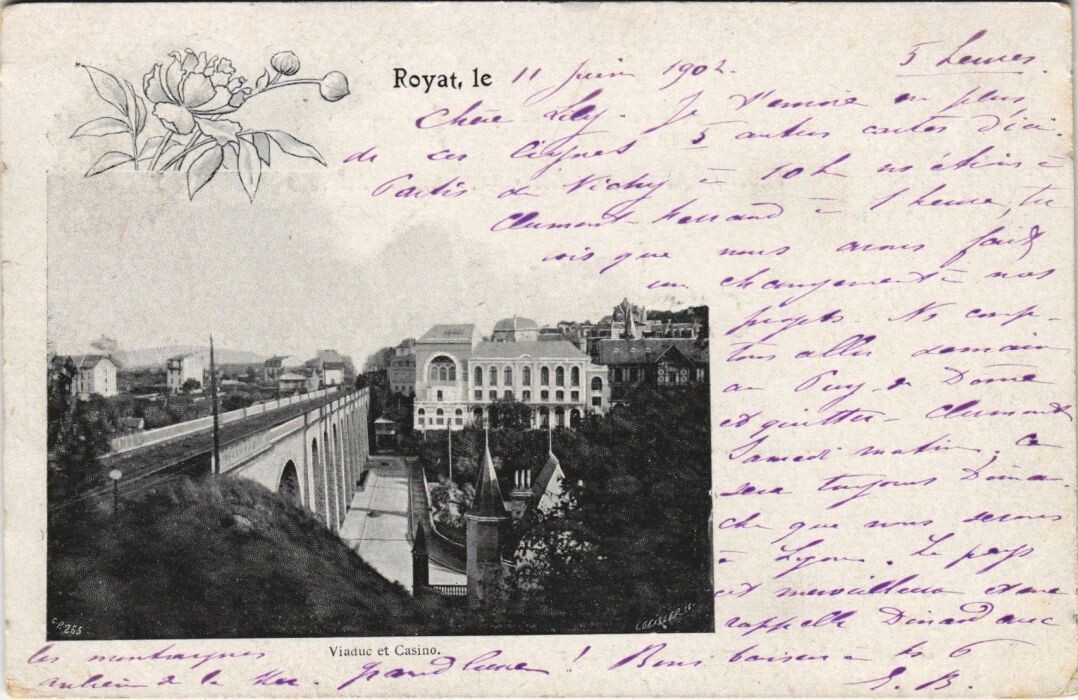 Royat, le 11 Juin 1902. 5 heures.
Chère Lily. Je t'envoie en plus
de ces lignes 5 autres cartes d'ici.
Partis de Vichy à 10h ns étions à
Clermont-Ferrand à 1 heure, tu
vois que nous avons fait
un changement à nos
projets. Ns comp-
tons aller demain
au Puy de Dôme
et quitter Clermont
Samedi matin, ce
sera toujours Diman-
che que nous serons
à Lyon. Le pays
est merveilleux et me
rappelle Dinard avec
les montagnes
au lieu de la Mer. grand'mère ! Bons baisers à ts 6
J. B.
Viaduc et Casino.
C.P. 255
L. GEISLER